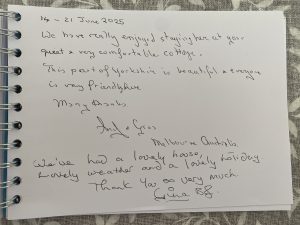 - 21 June 2025
We have really enjoyed staying her at your
great & very comfortable cottage.
This part of Yorkshire is beautiful & everyone
is very friendly here
Many thanks
Melbourne Australia
We've had a lovely house,
Lovely weather and a lovely holiday
Thank You so very much